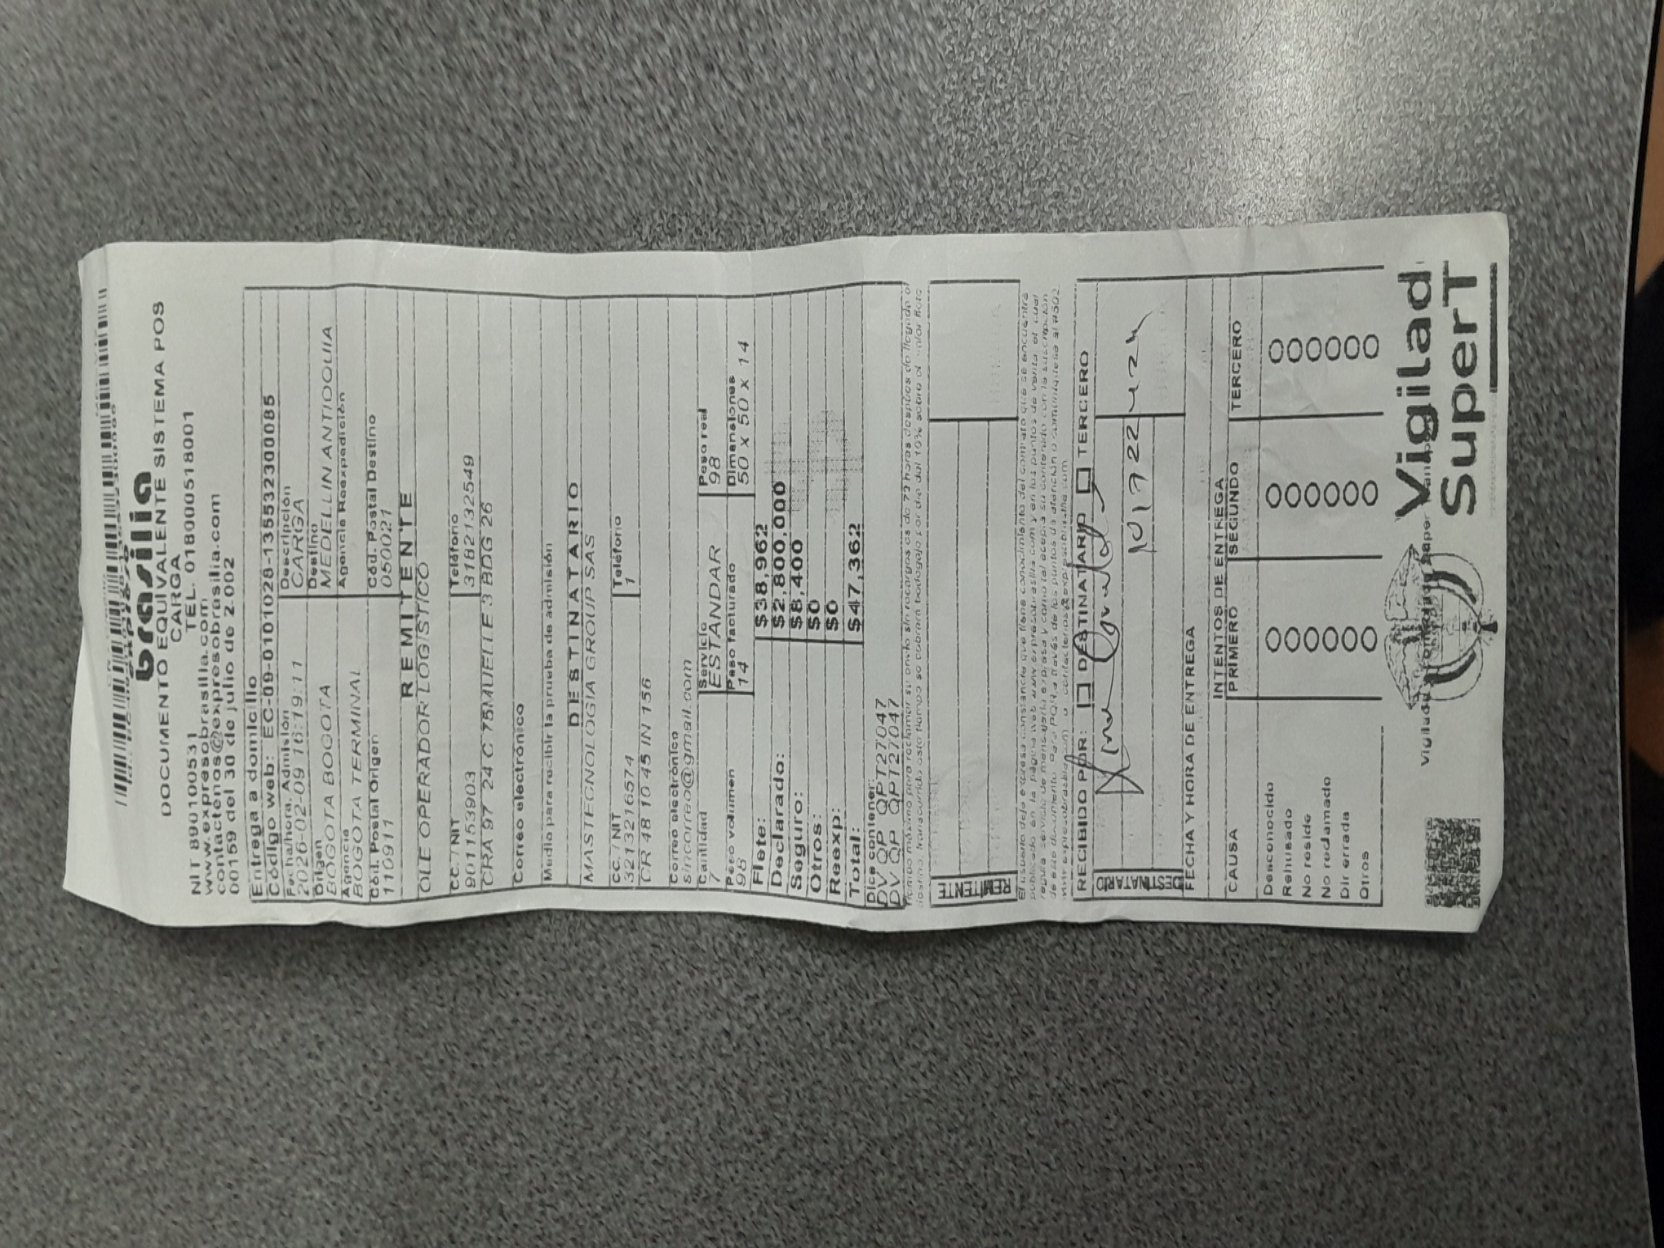 brasilia
DOCUMENTO EQUIVALENTE SISTEMA POS
CARGA
NIT 890100531 TEL. 018000518001
www.expresobrasilia.com
contactenos@expresobrasilia.com
00159 del 30 de julio de 2.002
Entrega a domicilio
Código web: EC-09-0101028-1355323008​5
Fecha/hora. Admisión Descripción
2026-02-09 16:19:11 CARGA
Origen Destino
BOGOTA BOGOTA MEDELLIN ANTIOQUIA
Agencia Agencia Reexpedición
BOGOTA TERMINAL
Cód. Postal Origen Cód. Postal Destino
110911 050021
REMITENTE
OLE OPERADOR LOGISTICO
CC. / NIT Teléfono
901153903 3182132549
CRA 97 24 C 75MUELLE 3 BDG 26
Correo electrónico
Medio para recibir la prueba de admisión
DESTINATARIO
MASTECNOLOGIA GROUP SAS
CC. / NIT Teléfono
3213216574 1
CR 48 10 45 IN 156
Correo electrónico
sincorreo@gmail.com
Cantidad Servicio Peso real
7 ESTANDAR 98
Peso volumen Peso facturado Dimensiones
98 14 50 x 50 x 14
Flete: $38,962
Declarado: $2,800,000
Seguro: $8,400
Otros: $0
Reexp: $0
Total: $47,362
Dice contener:
DV QP QPT27047
DV QP QPT27047
REMITENTE
RECIBIDO POR: DESTINATARIO TERCERO
DESTINATARIO
FECHA Y HORA DE ENTREGA
INTENTOS DE ENTREGA
CAUSA PRIMERO SEGUNDO TERCERO
Desconocido
Rehusado
No reside
No reclamado
Dir errada
Otros
Vigilad
SuperT